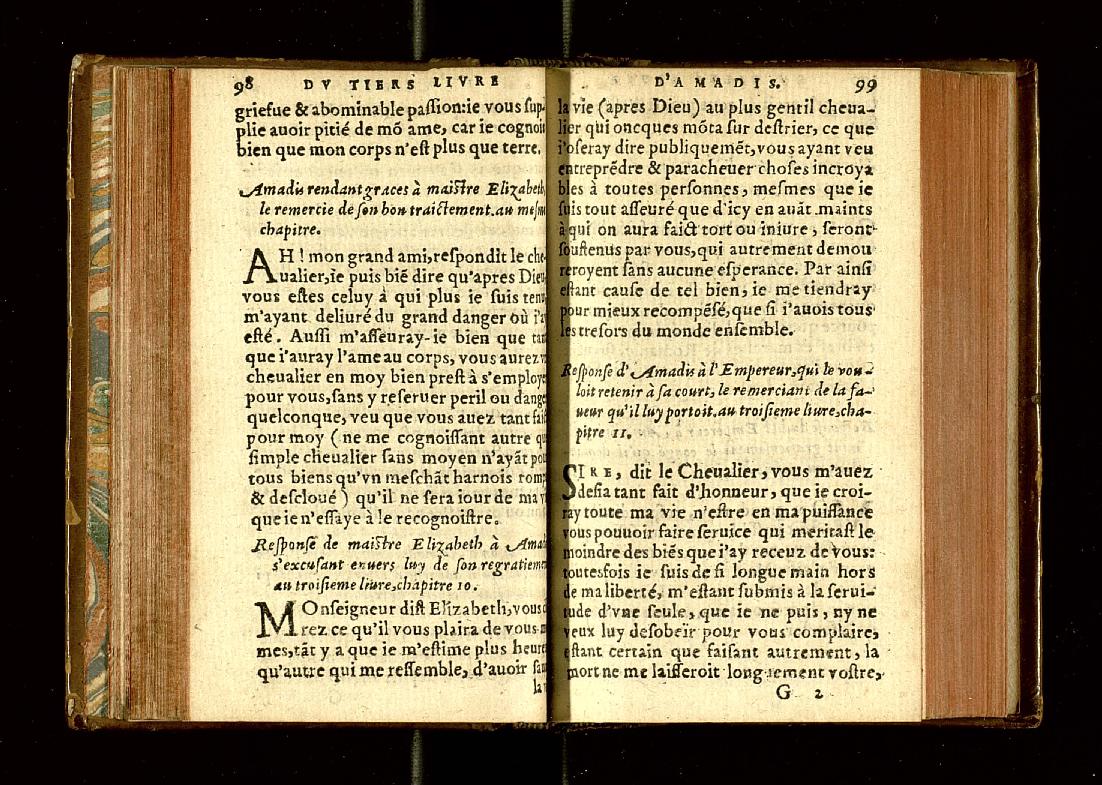 98 DV TIERS LIVRE
griefue & abominable paſſion:ie vous ſup-
plie auoir pitié de mõ ame, car ie cognoi
bien que mon corps n'eſt plus que terre.
Amadis rendant graces à maiſtre Elizabeth,
le remercie de ſon bon traictement.au meſm
chapitre.
AH ! mon grand ami,reſpondit le che-
ualier,ie puis biẽ dire qu'apres Dieu
vous eſtes celuy à qui plus ie ſuis tenu
m'ayant deliuré du grand danger où i'a
eſté. Auſſi m'aſſeuray-ie bien que tan
que i'auray l'ame au corps, vous aurez v
cheualier en moy bien preſt à s'employe
pour vous,ſans y reſeruer peril ou dange
quelconque, veu que vous auez tant fai
pour moy ( ne me cognoiſſant autre qu
ſimple cheualier ſans moyen n'ayãt pou
tous biens qu'vn meſchãt harnois romp
& deſcloué ) qu'il ne ſera iour de ma v
que ie n'eſſaye à le recognoiſtre.
Reſponſe de maiſtre Elizabeth à Ama
s'excuſant enuers luy de ſon regratiemen
au troiſieme liure,chapitre 10.
MOnſeigneur diſt Elizabeth,vous
rez ce qu'il vous plaira de vous-m
mes,tãt y a que ie m'eſtime plus heure
qu'autre qui me reſſemble, d'auoir ſau
la
D'AMADIS. 99
la vie (apres Dieu) au plus gentil cheua-
lier qui oncques mõta ſur deſtrier, ce que
i'oſeray dire publiquemẽt,vous ayant veu
entreprẽdre & paracheuer choſes incroya
bles à toutes perſonnes, meſmes que ie
ſuis tout aſſeuré que d'icy en auãt maints
à qui on aura faict tort ou iniure, ſeront
ſouſtenus par vous,qui autrement demou
reroyent ſans aucune eſperance. Par ainſi
eſtant cauſe de tel bien, ie me tiendray
pour mieux recompẽſé,que ſi i'auois tous
les treſors du monde enſemble.
Reſponſe d'Amadis à l'Empereur,qui le vou-
loit retenir à ſa court, le remerciant de la fa-
ueur qu'il luy portoit.au troiſieme liure,cha-
pitre 11.
SIRE, dit le Cheualier, vous m'auez
deſia tant fait d'honneur, que ie croi-
ray toute ma vie n'eſtre en ma puiſſance
vous pouuoir faire ſeruice qui meritaſt le
moindre des biẽs que i'ay receuz de vous:
toutesfois ie ſuis de ſi longue main hors
de ma liberté, m'eſtant ſubmis à la ſerui-
tude d'vne ſeule, que ie ne puis, ny ne
veux luy deſobeïr pour vous complaire,
eſtant certain que faiſant autrement, la
mort ne me laiſſeroit longuement voſtre,
G 2